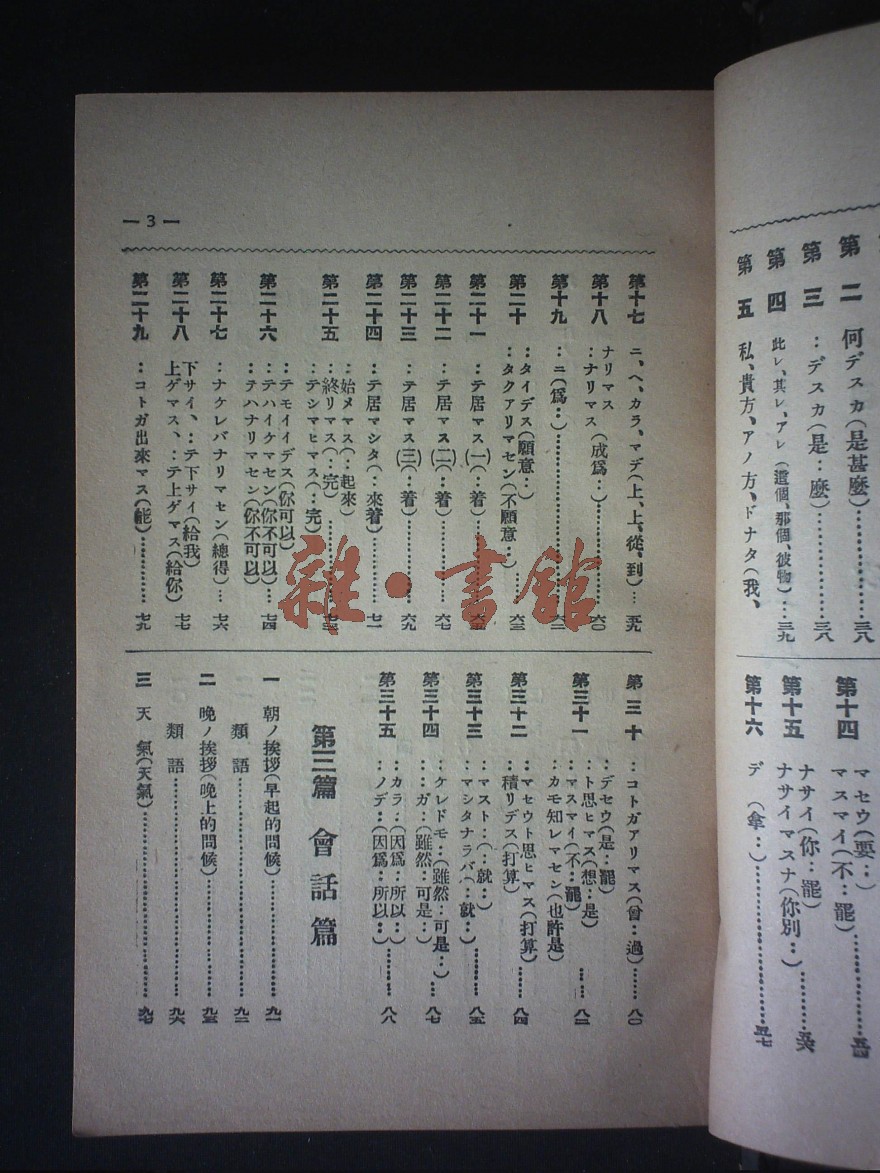 第二 何デスカ(是甚麼)………三八
第三 ‥デスカ(是‥麼)………三八
第四 此レ、其レ、アレ(這個、那個、彼物)…三九
第五 私、貴方、アノ方、ドナタ(我、
第十四 マセウ(要‥)
マスマイ(不‥罷)………五四
第十五 ナサイ(你‥罷)
ナサイマスナ(你別‥)………五六
第十六 デ(拿‥)………五七
—3—
第十七 ニ、ヘ、カラ、マデ(上、上、從、到)…五九
第十八 ナリマス
‥ナリマス(成爲‥)………六〇
第十九 ‥ニ(爲‥)………六二
第二十 ‥タイデス(願意‥)
‥タクアリマセン(不願意‥)…六三
第二十一 ‥テ居マス(一)(‥着)………六五
第二十二 ‥テ居マス(二)(‥着)………六七
第二十三 ‥テ居マス(三)(‥着)………六九
第二十四 ‥テ居マシタ(‥來着)………七一
第二十五 ‥始メマス(‥起來)
‥終リマス(‥完)………
‥テシマヒマス(‥完)
第二十六 ‥テモイイデス(你可以)
‥テハイケマセン(你不可以)…七四
‥テハナリマセン(你不可以)
第二十七 ‥ナケレバナリマセン(總得)…七六
第二十八 下サイ、‥テ下サイ(給我)
上ゲマス、‥テ上ゲマス(給你) 七七
第二十九 ‥コトガ出來マス(能)………七九
第三十 ‥コトガアリマス(曾‥過)……八〇
第三十一 ‥デセウ(是‥罷)
‥ト思ヒマス(想‥是)
‥マスマイ(不‥罷)……八二
‥カモ知レマセン(也許是)
第三十二 ‥マセウト思ヒマス(打算)
‥積リデス(打算)………八四
第三十三 ‥マスト‥(‥就‥)
‥マシタナラバ(‥就‥)………八五
第三十四 ‥ケレドモ‥(雖然‥可是‥)
‥‥ガ‥(雖然‥可是‥)…八七
第三十五 ‥カラ‥(因爲‥所以‥)
‥ノデ‥(因爲‥所以‥)………八八
第三篇 會話篇
一 朝ノ挨拶(早起的問候)………九一
類語………九二
二 晚ノ挨拶(晚上的問候)………九五
類語………九六
三 天氣(天氣)………九七
雜·書館